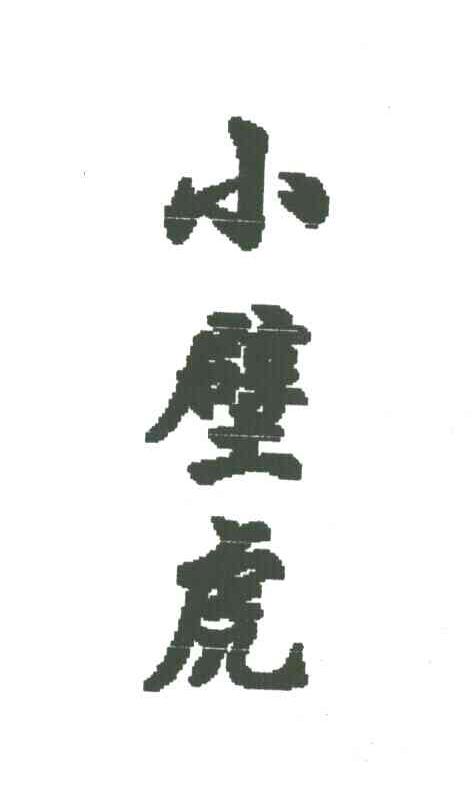 小壁虎